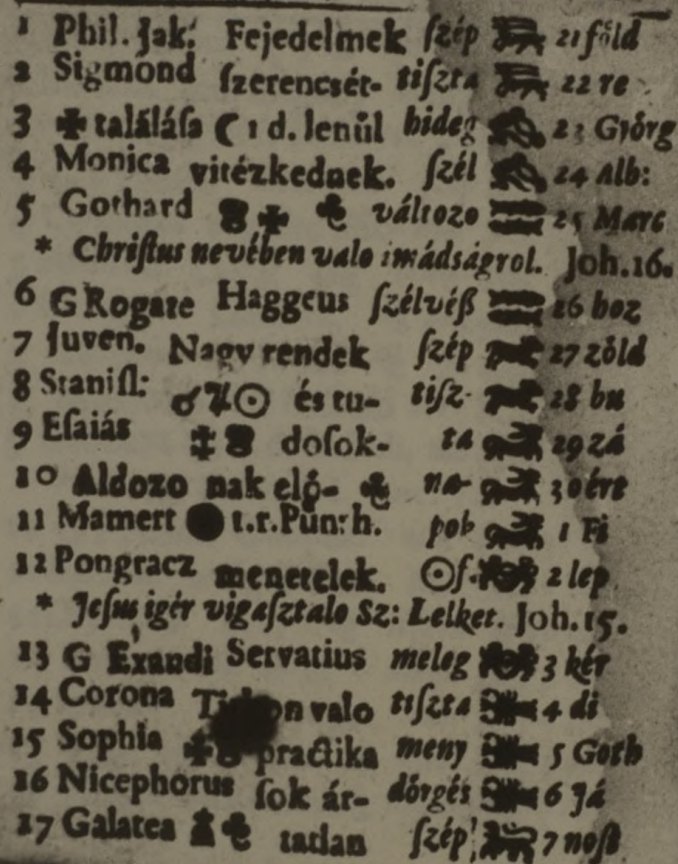 1 Phil. Jak: Fejedelmek ſzép 21 föld
2 Sigmond ſzerencsét- tiſzta 22 re
3 ✠ találáſa ☾ 1 d. lenûl hideg 23 Györg
4 Monica vitézkednek. ſzél 24 Alb:
5 Gothard ✠ változo 25 Marc
* Chriſtus nevében valo imádságrol. Joh. 16.
6 G Rogate Haggeus ſzélvéß 26 hoz
7 Juven. Nagy rendek ſzép 27 zöld
8 Staniſl: ♂♃☉ és tu- tiſz- 28 bu
9 Eſaiás doſok- ta 29 zá
10 Aldozo nak elö- na- 30 ért
11 Mamert ● t.r.Pünth. pob 1 Fi
12 Pongracz menetelek. ☉ſ. 2 lep
* Jeſus igér vigaſztalo Sz: Lelket. Joh. 15.
13 G Exaudi Servatius meleg 3 kér
14 Corona valo tiſzta 4 di
15 Sophia practika meny 5 Goth
16 Nicephorus ſok ár- dörgés 6 Já
17 Galatea tatlan ſzép 7 noſt